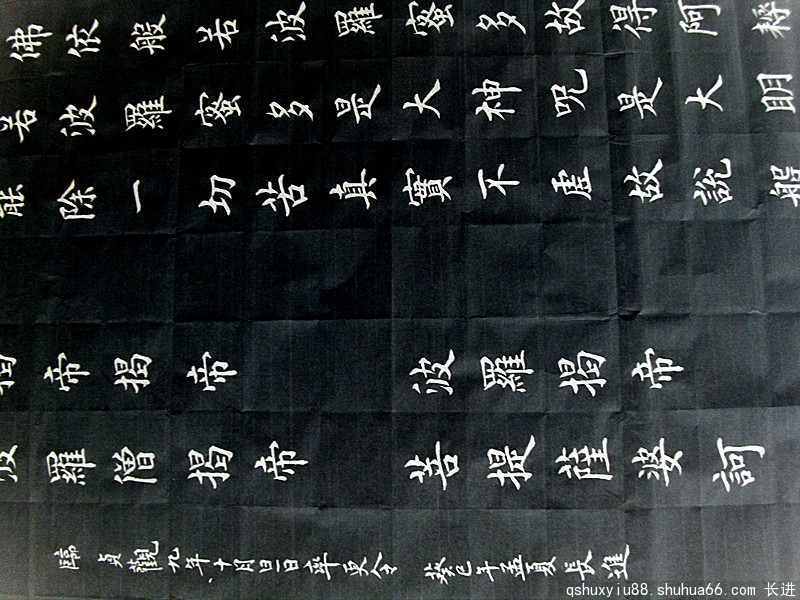 佛依般若波羅蜜多故得阿耨
若波羅蜜多是大神咒是大明
能除一切苦真實不虛故說般
揭帝揭帝 波羅揭帝
波羅僧揭帝 菩提薩婆訶
臨 貞觀九年十月旦日率更令 癸巳年孟夏 長進
qshuxyiu88.shuhua66.com 长进